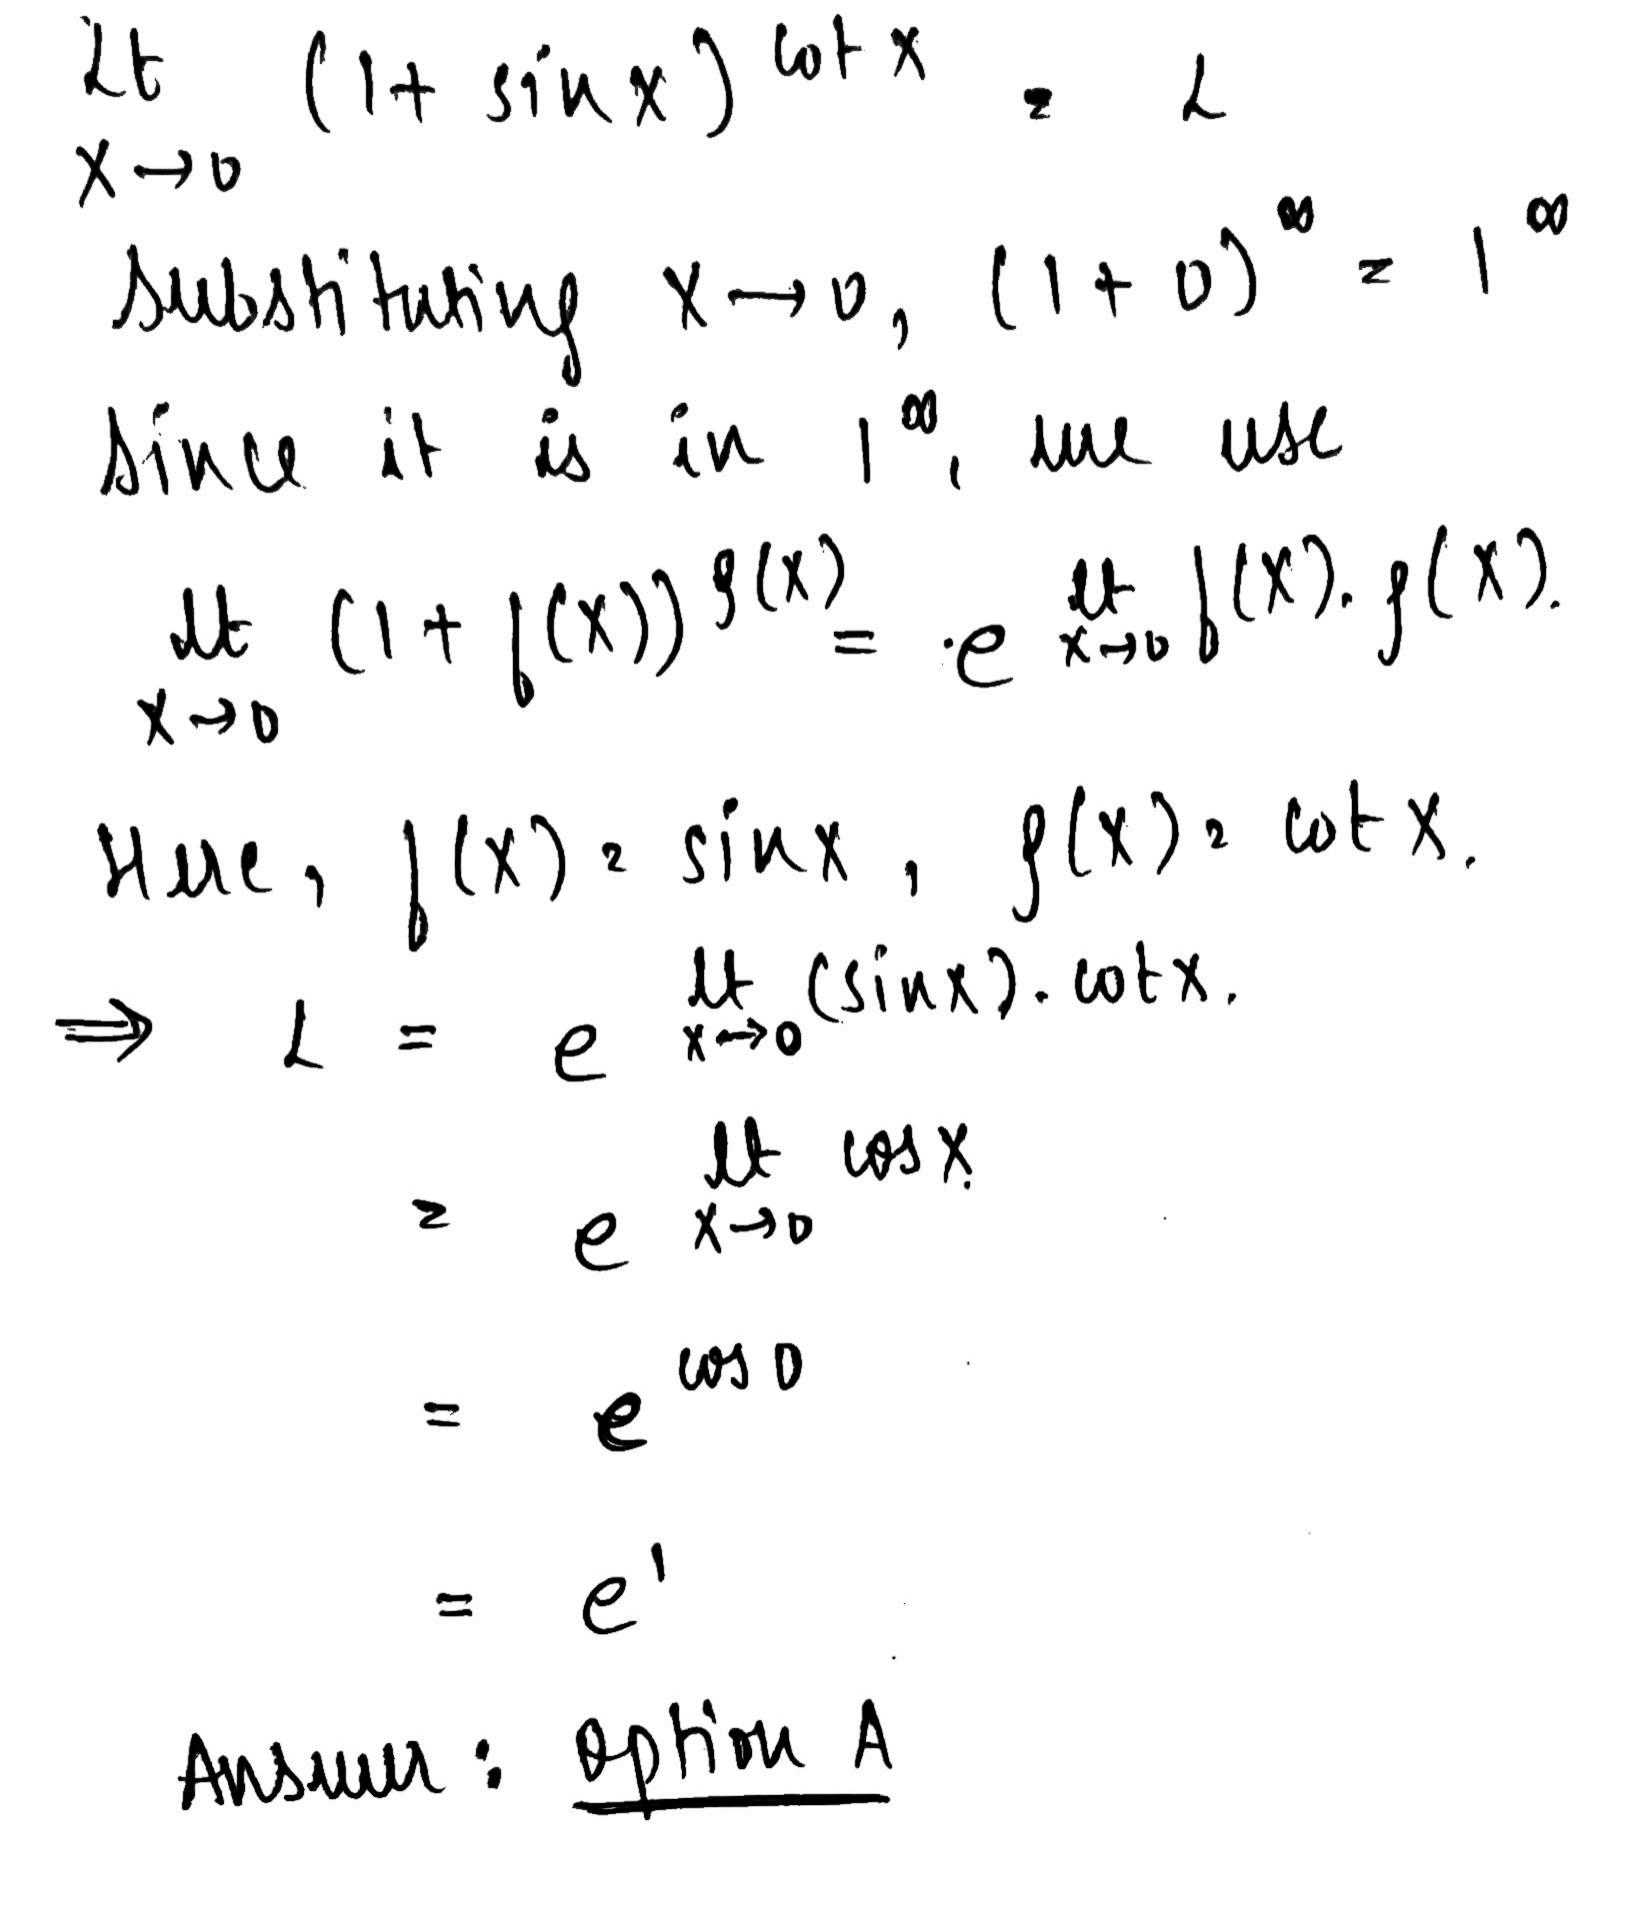 lt (1+ sin x)^cot x = L
x→0
Substituting x→0, (1+0)^∞ = 1^∞
Since it is in 1^∞, we use
lt (1+ f(x))^g(x) = e^lt x→0 f(x). g(x).
x→0
Here, f(x) = sin x, g(x) = cot x.
⇒ L = e^lt x→0 (sin x). cot x.
= e^lt x→0 cos x.
= e^cos 0
= e^1
Answer: Option A